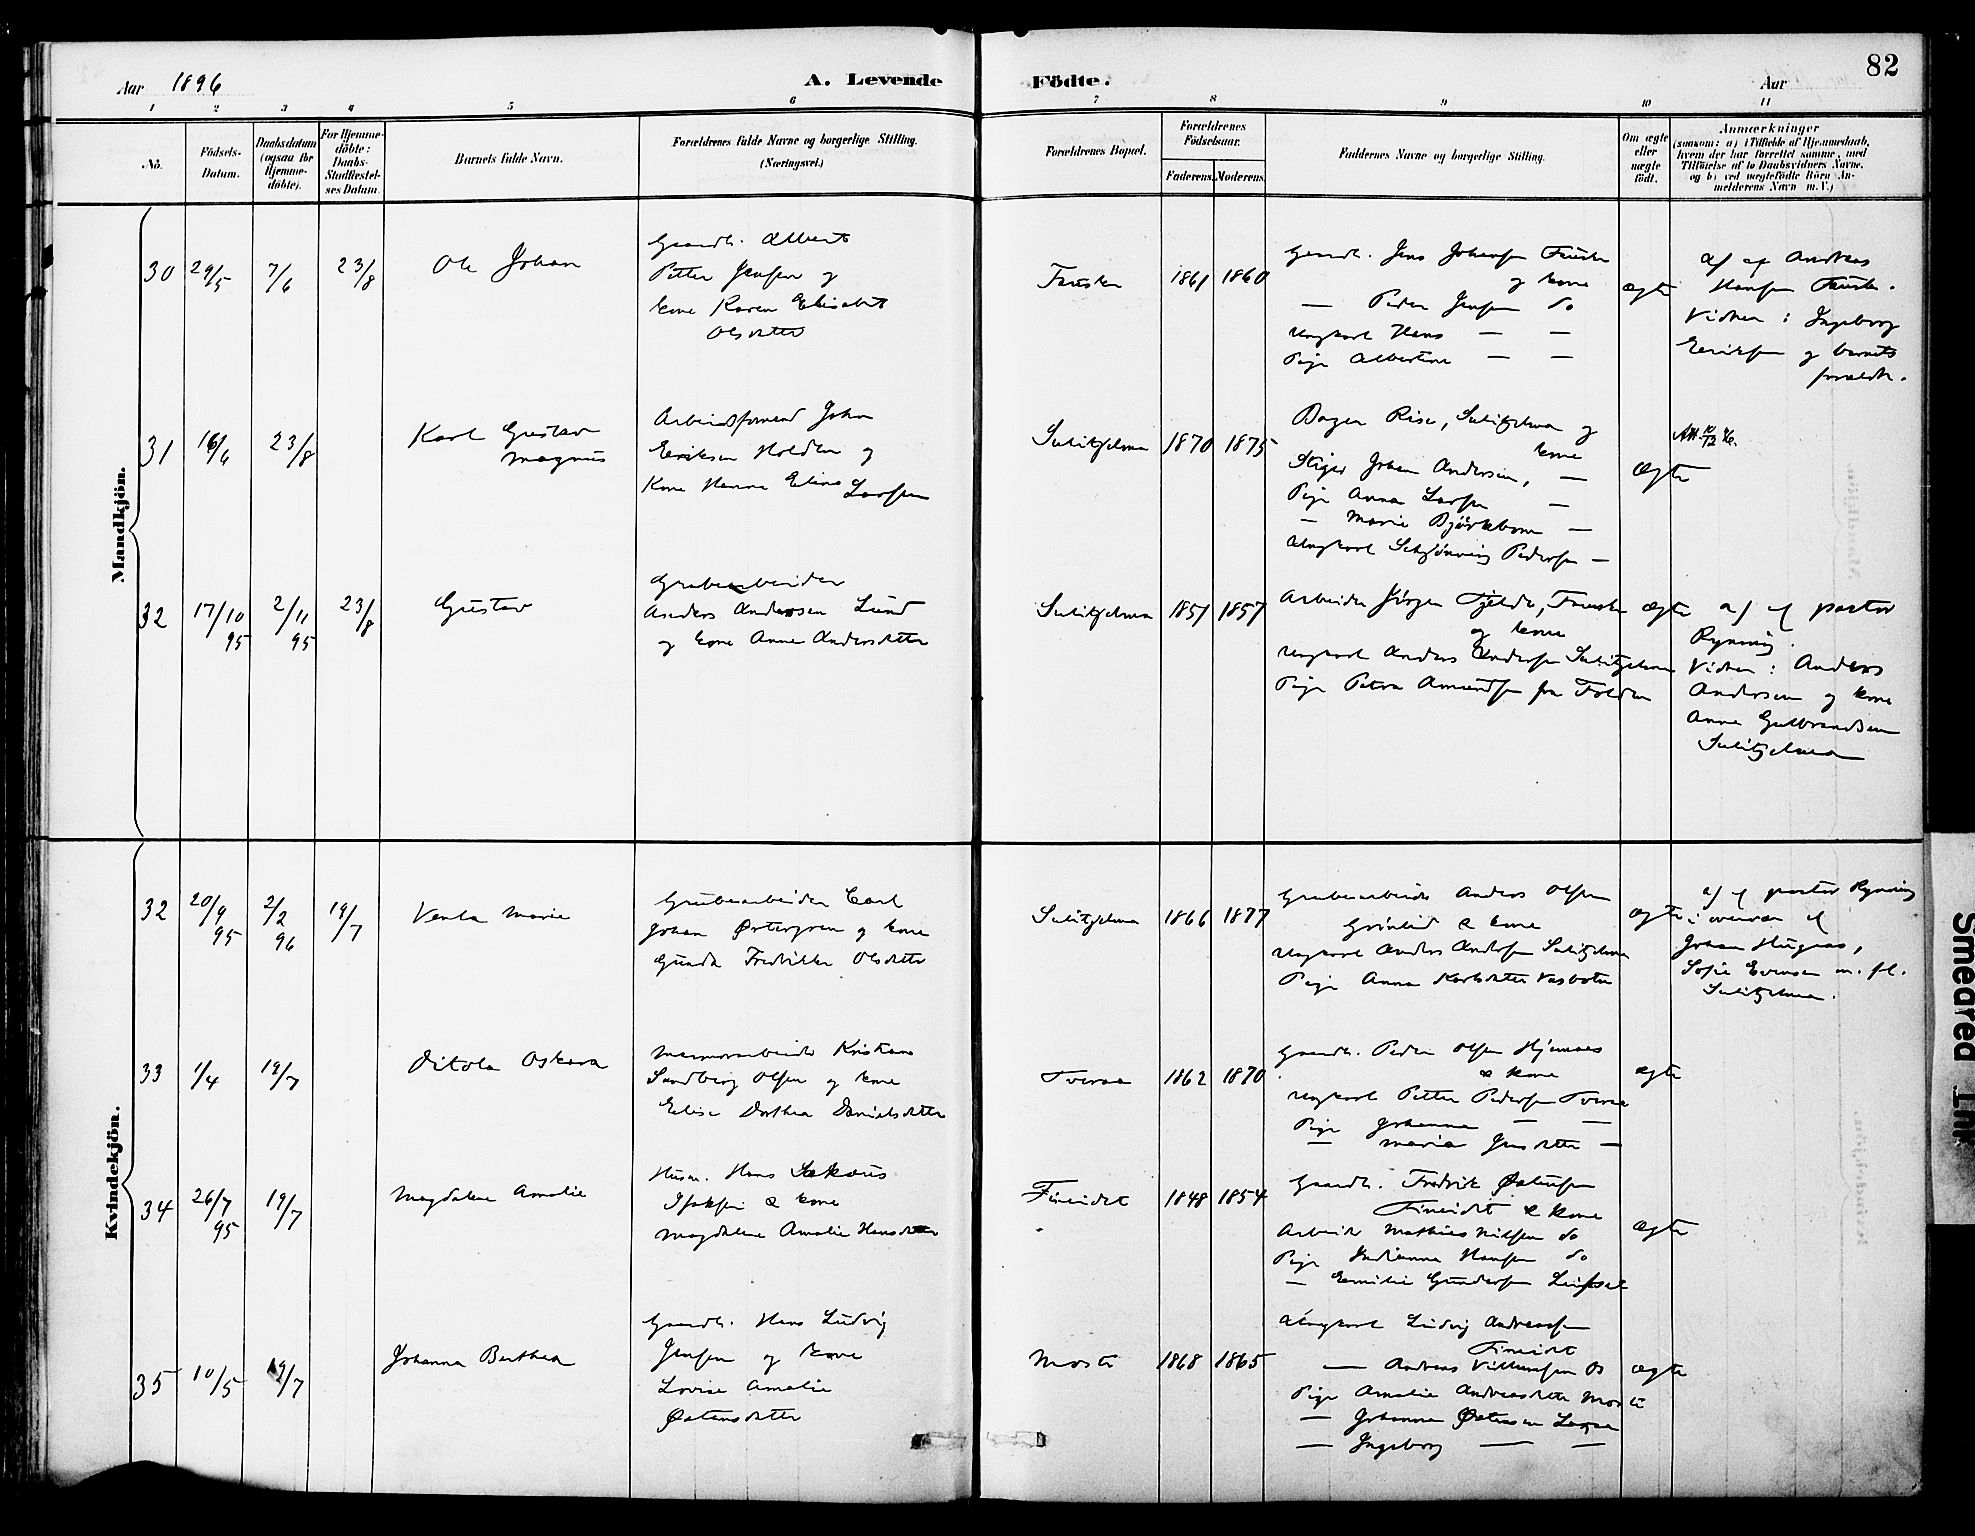 82
Aar 1896
A. Levende
Födte.
Aar
1 2 3 4 5 6 7 8 9 10 11
No.
Födsels-
Datum.
Daabsdatum
(ogsaa for
Hjemme-
döbte).
For Hjemme-
döbte:
Daabs-
Stadfæstel-
ses Datum.
Barnets fulde Navn.
Forældrenes fulde Navne og borgerlige Stilling.
(Næringsvei.)
Forældrenes Bopæl.
Forældrenes
Födselsaar.
Faderens. Moderens.
Faddernes Navne og borgerlige Stilling.
Om ægte
eller
uægte
födt.
Anmærkninger
(saasom: a) i Tilfælde af Hjemmedaab,
hvem der har forrettet samme, med
Tilföielse af to Daabsvidners Navne,
og b) ved uægtefödte Börn An-
melderens Navn m. V.)
Mandkjön.
30 29/5 7/6 23/8 Ole Johan
Gaardb. Albert
Petter Jensen og
kone Karen Elisabet
Olsdatter
Fauske 1861 1860
Gaardb. Jens Johansen Fauske
og kone
— Peder Jensen do
Ungkarl Hans — —
Pige Albertine — —
ægte
a) af Andreas
Hansen Fauske.
Vidner: Ingeborg
Eriksen og barnets
foreldre.
31 16/6 23/8 Karl Gustav
Magnus
Arbeidsformand Johan
Eriksen Holdten og
Kone Hanna Elina Larsen
Sulitjelma 1870 1875
Bager Riise, Sulitjelma og
kone
Stiger Johan Andersen, —
Pige Anna Larsen —
— Marie Björkbom —
Ungkarl Pedersen —
ægte
Att. 10/12 96.
32 17/10 95 2/11 95 23/8 Gustav
Grubearbeider
Anders Andersen Lund
og kone Anne Andersdatter
Sulitjelma 1851 1857
Arbeider Jörgen Fjelde, Fauske
og kone
Ungkarl Anders Andersen Sulitjelma
Pige Petra Amundsen fra Folden
ægte
a) af pastor
Rynning.
Vidner: Anders
Andersen og kone
Anne Gulbrandsen
Sulitjelma
Kvindekjön.
32 20/9 95 2/2 96 19/7 Venla Marie
Grubearbeider Carl
Johan Östergren og kone
Gunda Fredrikke Olsdatter
Sulitjelma 1866 1877
Grubearbeider Anders Olsen
Grönlid & kone
Ungkarl Anders Andersen Sulitjelma
Pige Anna Karlsdatter Vasbotn
ægte
a) af pastor Rynning
i overvær af
Johan Hugnas,
Sofie Evensen m. fl.
Sulitjelma.
33 1/4 19/7 Ditola Oskara
Marmorarbeider Kristian
Sandberg Olsen og kone
Elise Dorthea Danielsdatter
Tveraa 1862 1870
Gaardb. Peder Olsen Hjemaas
& kone
Ungkarl Petter Pedersen Tveraa
Pige Johanna — —
— Maria Jensdatter —
ægte
34 26/7 95 19/7 Magdalene Amalie
Husm. Hans Sakæus
Isaksen & kone
Magdalene Amalie Hansdatter
Fineidet 1848 1854
Gaardb. Fredrik Östensen
Fineidet & kone
Arbeider Mathias Nilsen do
Pige Indianna Hansen do
— Emilie Gundersen Leifset
ægte
35 10/5 19/7 Johanna Berthea
Gaardb. Hans Ludvig
Jensen og kone
Lovise Amalie
Östensdatter
Moste 1868 1865
Ungkarl Ludvig Andreassen
Fineidet
— Andreas Villumsen Os
Pige Amalie Andreasdatter Moste
— Johanna Östensen
— Ingeborg — —
ægte
Smeared Ink